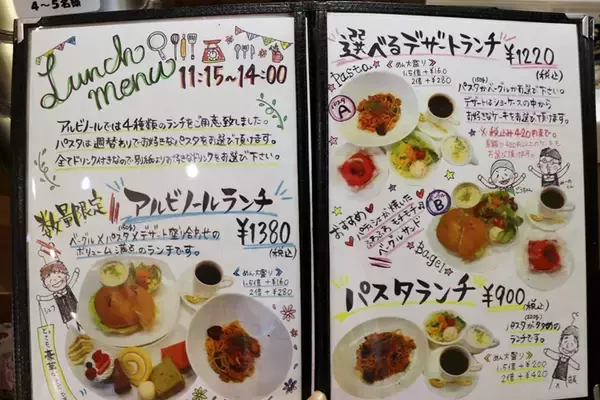 4〜5名席
Lunch menu
11:15〜14:00
アルビノールでは4種類のランチをご用意致しました。
パスタは週替わりでお好きなパスタをお選び頂けます。
全てドリンク付きなので別紙よりお好きなドリンクをお選び下さい。
数量限定
アルビノールランチ
ベーグル×パスタ×デザート盛り合わせの
(50g)
ボリューム満点のランチです。
¥1380
(税込)
《めん大盛り》
1.5倍+¥160
2倍+¥280
シェフ
とっても豪華
選べるデザートランチ ¥1220
(税込)
Pasta
《めん大盛り》
1.5倍+¥160
2倍+¥280
A
(100g)
パスタかベーグルかお選び下さい。
デザートはショーケースの中から
お好きなケーキをお選び頂けます。
※税込み420円まで。
おすすめ
パティシエが焼いた
モチモチ
ベーグルサンド
B
Bagel
パスタランチ ¥900
(税込)
(100g)
パスタがメインの
ランチです。
《めん大盛り》
1.5倍+¥200
2倍+¥420
店長